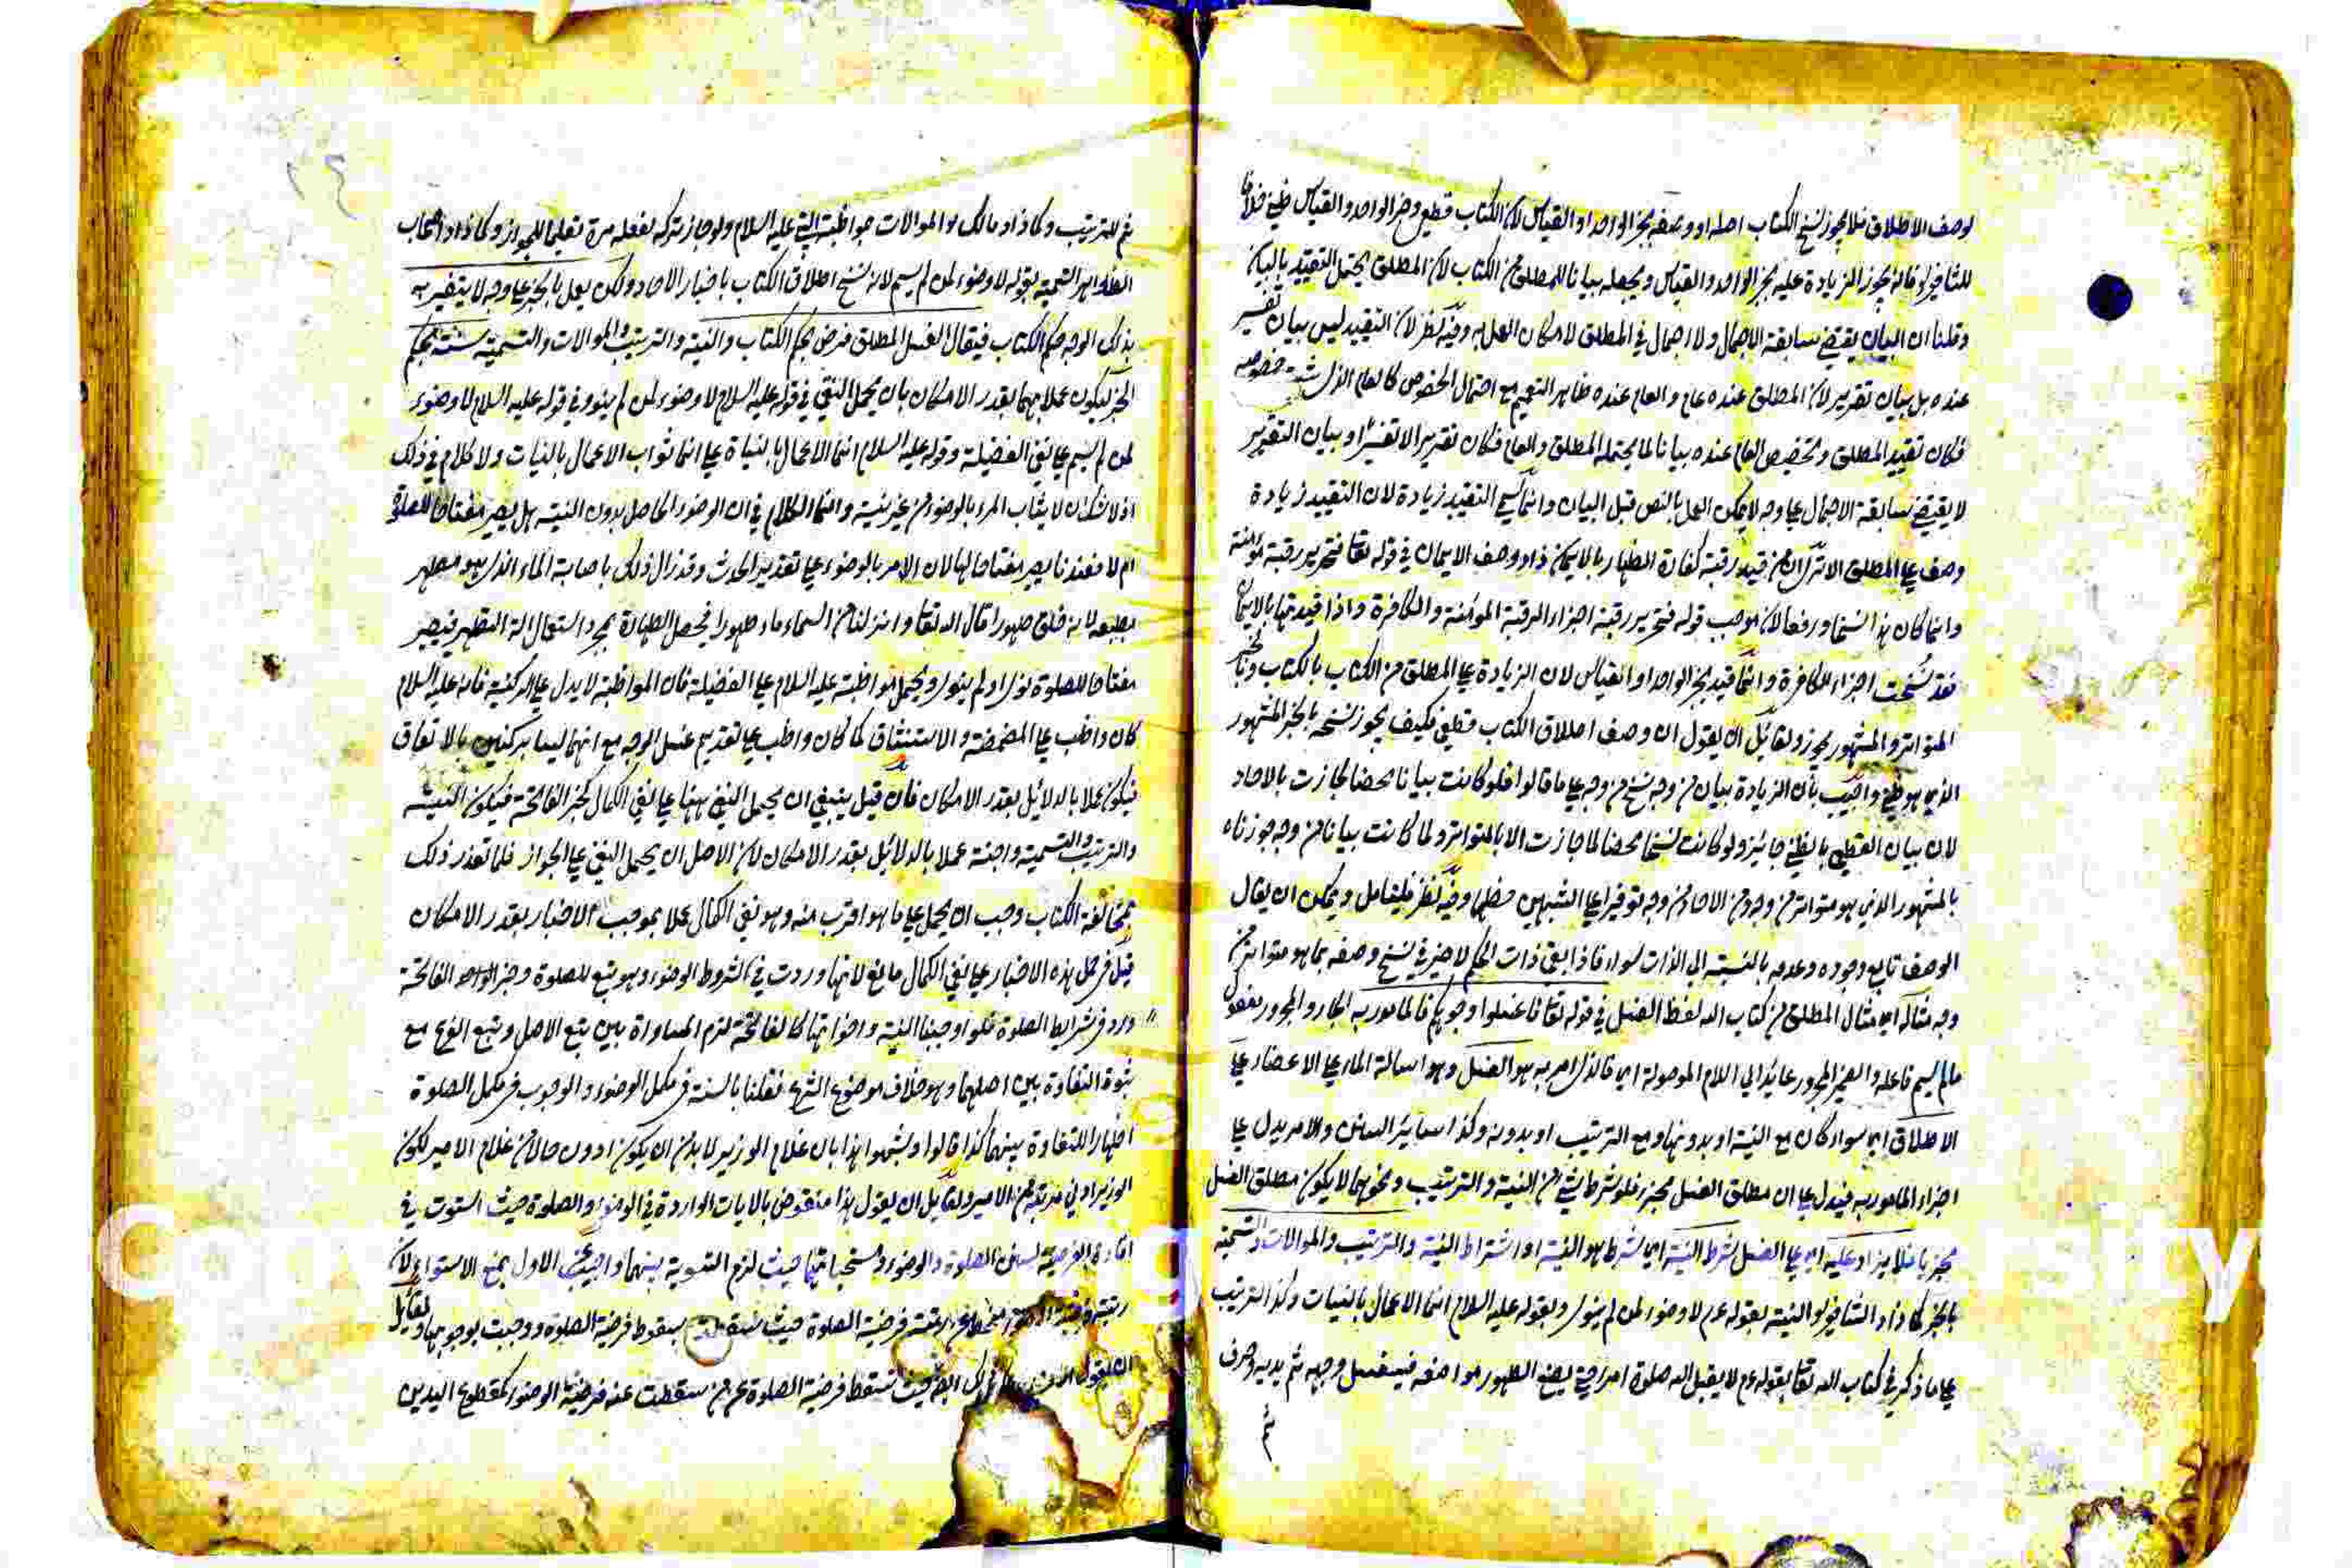 لوصف الاطلاق فلا يجوز نسخ الكتاب اصله او وصفه بخبر الواحد او القياس لان الكتاب قطعي وخبر الواحد والقياس ظني خلافا
للشافعي فانه يجوز الزيادة عليه بخبر الواحد والقياس ويجعله بيانا للمطلق من الكتاب لان المطلق يحتمل التقييد بالبيان
وقلنا ان البيان يقتضي سابقة الاجمال ولا اجمال في المطلق لامكان العمل به وفيه نظر لان التقييد ليس بيان تفسير
عنده بل بيان تقرير لان المطلق عنده عام والعام عنده ظاهر التعميم مع احتمال الخصوص كالعام الذي خصوصه
فكان تقييد المطلق وتخصيص العام عنده بيانا لما يحتمله المطلق والعام فكان تقريرا لا تفسيرا وبيان التقرير
لا يقتضي سابقة الاجمال على وجه لا يمكن العمل بالنص قبل البيان وانما سمي التقييد زيادة لان التقييد زيادة
وصف على المطلق الا ترى ان من قيد رقبة كفارة الظهار بالايمان زاد وصف الايمان في قوله تعا فتحرير رقبة مؤمنة
وانما كان هذا نسخا ورفعا لان موجب قوله فتحرير رقبة اجزاء الرقبة المؤمنة والكافرة واذا قيدتها بالايمان
فقد نسخت اجزاء الكافرة وانما قيد بخبر الواحد والقياس لان الزيادة على المطلق من الكتاب بالكتاب وبالخبر
المتواتر والمشهور يجوز ولقائل ان يقول ان وصف اطلاق الكتاب قطعي فكيف يجوز نسخه بالخبر المشهور
الذي هو ظني واجيب بان الزيادة بيان من وجه نسخ من وجه على ما قالوا فلو كانت بيانا محضا لجازت بالاحاد
لان بيان القطعي بالظني جائز ولو كانت نسخا محضا لما جازت الا بالمتواتر ولما كانت بيانا من وجه جوزناه
بالمشهور الذي هو متواتر من وجه ومن الاحاد من وجه توفيرا على الشبهين حظهما وفيه نظر فليتامل ويمكن ان يقال
الوصف تابع وجوده وعدمه بالنسبة الى الذات سواء فاذا بقي ذات الحكم لا ضير في نسخ وصفه بما هو متواتر من
وجه مثاله اي مثال المطلق من كتاب الله لفظ الغسل في قوله تعا فاغسلوا وجوهكم فالمامور به الجار والمجرور مفعول
مالم يسم فاعله والضمير المجرور عائد الى اللام الموصولة اي فالذي امر به هو الغسل وهو اسالة الماء على الاعضاء على
الاطلاق اي سواء كان مع النية او بدونها ومع الترتيب او بدونه وكذا سائر السنن والامر يدل على
اجزاء المامور به فيدل على ان مطلق الغسل مجزء فلو شرط شيء من النية والترتيب ونحوهما لا يكون مطلق الغسل
مجزيا فلا يزاد عليه اي على الغسل شرط النية اي شرط هو النية او اشتراط النية والترتيب والموالات والتسمية
بالخبر كما زاد الشافعي النية بقوله عم لا وضوء لمن لم ينو وبقوله عليه السلام انما الاعمال بالنيات وكذا الترتيب
على ما ذكر في كتاب الله تعا بقوله عم لا يقبل الله صلوة امرء حتى يضع الطهور مواضعه فيغسل وجهه ثم يديه وحرف
ثم
ثم للترتيب وكما زاد مالك والموالات بمواظبة النبي عليه السلام ولو جاز تركه لفعله مرة تعليما للجواز وكما زاد اصحاب
الظواهر التسمية بقوله لا وضوء لمن لم يسم لانه نسخ اطلاق الكتاب باخبار الاحاد ولكن يعمل بالخبر على وجه لا يتغير به
بذلك الوجه حكم الكتاب فيقال الغسل المطلق فرض بحكم الكتاب والنية والترتيب والموالات والتسمية سنة بحكم
الخبر ليكون عملا بهما بقدر الامكان بان يحمل النفي في قوله عليه السلام لا وضوء لمن لم ينو وفي قوله عليه السلام لا وضوء
لمن لم يسم على نفي الفضيلة وقوله عليه السلام انما الاعمال بالنيات على انما ثواب الاعمال بالنيات ولا كلام في ذلك
اذ لا شك انه لا يثاب المرء بالوضوء من غير نية وانما الكلام في ان الوضوء الحاصل بدون النية هل يصير مفتاحا للصلوة
ام لا فعندنا يصير مفتاحا لها لان الامر بالوضوء على تقدير الحدث وقد زال ذلك باصابة الماء الذي هو مطهر
بطبعه لانه خلق طهورا قال الله تعا وانزلنا من السماء ماء طهورا فيحصل الطهارة بمجرد استعمال الة التطهير فيصير
مفتاحا للصلوة نوى او لم ينو ويحمل مواظبته عليه السلام على الفضيلة فان المواظبة لا يدل على الركنية فانه عليه السلام
كان واظب على المضمضة والاستنشاق كما كان واظب على تقديم غسل الوجه مع انهما ليسا بركنين بالاتفاق
فيكون عملا بالدلائل بقدر الامكان فان قيل ينبغي ان يحمل النفي ههنا على نفي الكمال كخبر الفاتحة فيكون النية
والترتيب والتسمية واجبة عملا بالدلائل بقدر الامكان لان الاصل ان يحمل النفي على الجواز فلما تعذر ذلك
بمخالفة الكتاب وجب ان يحمل على ما هو اقرب منه وهو نفي الكمال عملا بموجب الاخبار بقدر الامكان
قيل في حمل هذه الاخبار على نفي الكمال مانع لانها وردت في الشروط الوضوء وهو تبع للصلوة وخبر الواحد الفاتحة
ورد في شرايط الصلوة فلو اوجبنا النية واخواتها كالفاتحة لزم المساواة بين تبع الاصل وتبع الفرع مع
ثبوة التفاوة بين اصلهما وهو خلاف موضوع الشرع فقلنا بالسنة في مكمل الوضوء والوجوب في مكمل الصلوة
اظهارا للتفاوة بينهما كذا قالوا وشبهوا هذا بان غلام الوزير لا بد من ان يكون ادون حالا من غلام الامير لكون
الوزير ادنى مرتبة من الامير ولقائل ان يقول هذا منقوض بالايات الواردة في الوضوء والصلوة حيث استوت في
افادة الفرضية لسنن الصلوة والوضوء ومستحباتهما حيث لزم التسوية بينهما واجيب عن الاول بمنع الاستواء لان
رتبة فرضية الوضوء منحطة عن رتبة فرضية الصلوة حيث سقطت بسقوط فرضية الصلوة ووجبت بوجوبها ولقائل
ان يقول حيث تسقط فرضية الصلوة عمن سقطت عنه فرضية الوضوء كمقطوع اليدين